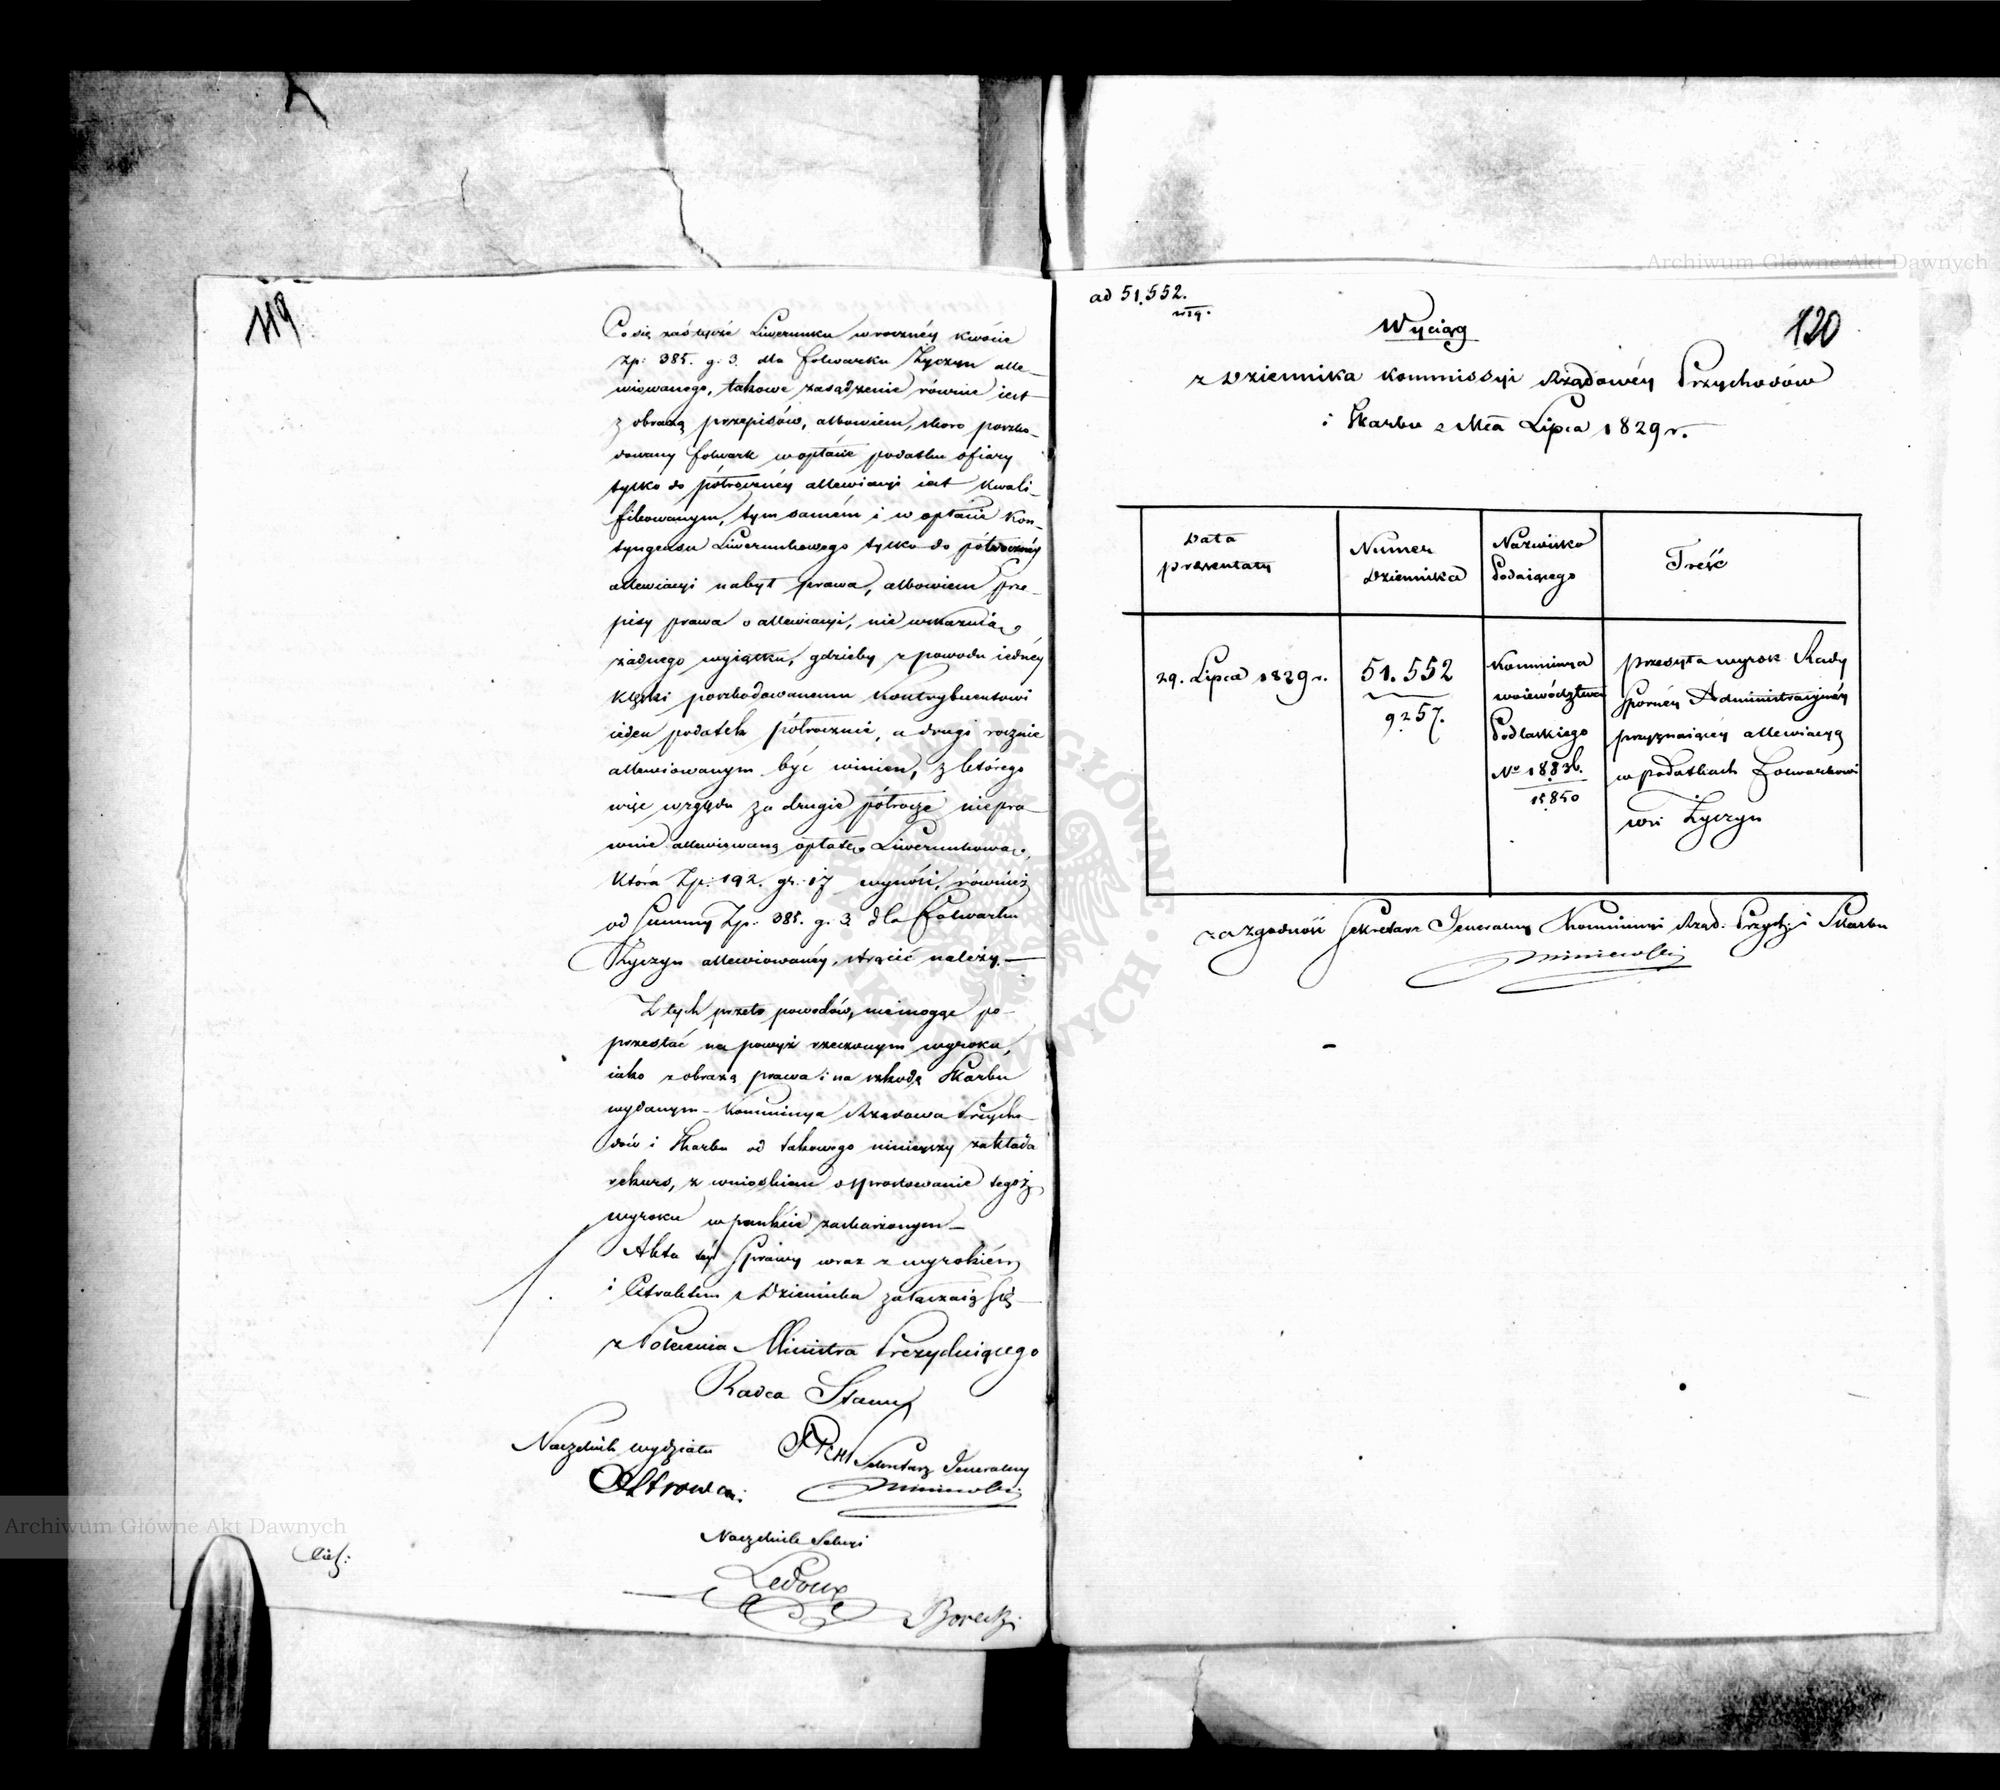 119
Co się zaś tycze Liwerunku w roczney kwocie
Zp: 385. g: 3. dla folwarku Życzyn alle-
wiowanego, takowe zasądzenie równie iest
z obrazą przepisów, albowiem, skoro poszko-
dowany folwark w opłacie podatku ofiary
tylko do półroczney allewiacyi iest kwali-
fikowanym, tym samém i w opłacie kon-
tyngensu Liwerunkowego tylko do półroczney
allewiacyi nabył prawa, albowiem prze-
pisy prawa o allewiacyi, nie wskazuią
żadnego wyiątku, gdzieby z powodu iedney
klęski poszkodowanemu kontrybuentowi
ieden podatek półrocznie, a drugi rocznie
allewiowanym być winien, z którego
więc względu za drugie półrocze niepra-
wnie allewiowaną opłatę Liwerunkową,
która Zp: 192. gr: 17 wynosi, również
od Summy Zp: 385. g: 3 dla Folwarku
Życzyn allewiowaney, strącić należy.—
Z tych przeto powodów, nie mogąc po-
przestać na powyż rzeczonym wyroku,
iako z obrazą prawa i na szkodę Skarbu
wydanym- Kommissya Rządowa Przycho-
dów i Skarbu od takowego ninieyszy zakłada
rekurs, z wnioskiem o sprostowanie tegoż
wyroku w punkcie zaskarżonym-
Akta téy Sprawy wraz z wyrokiém
i Extraktem z Dziennika załączaią się-
z Polecenia Ministra Prezyduiącego
Radca Stanu
Naczelnik wydziału
Sekretarz Jeneralny
Naczelnik Sekcyi
Ledoux
Borecki
ad 51.552.
120
Wyciąg
z Dziennika Kommissyi Rządowéy Przychodów
i Skarbu z Mca Lipca 1829 r.
Data prezentaty
Numer Dziennika
Nazwisko Podaiącego
Treść
29. Lipca 1829 r.
51.552
9257.
Kommissya
województwa
Podlaskiego
No 18836.
15850
przesyła wyrok Rady
Sporney Administracyiney
przyznaiący allewiacyą
w podatkach Folwarkowi
wsi Życzyn
za zgodność Sekretarz Jeneralny Kommissyi Rząd: Przych: i Skarbu
Archiwum Główne Akt Dawnych
Archiwum Główne Akt Dawnych